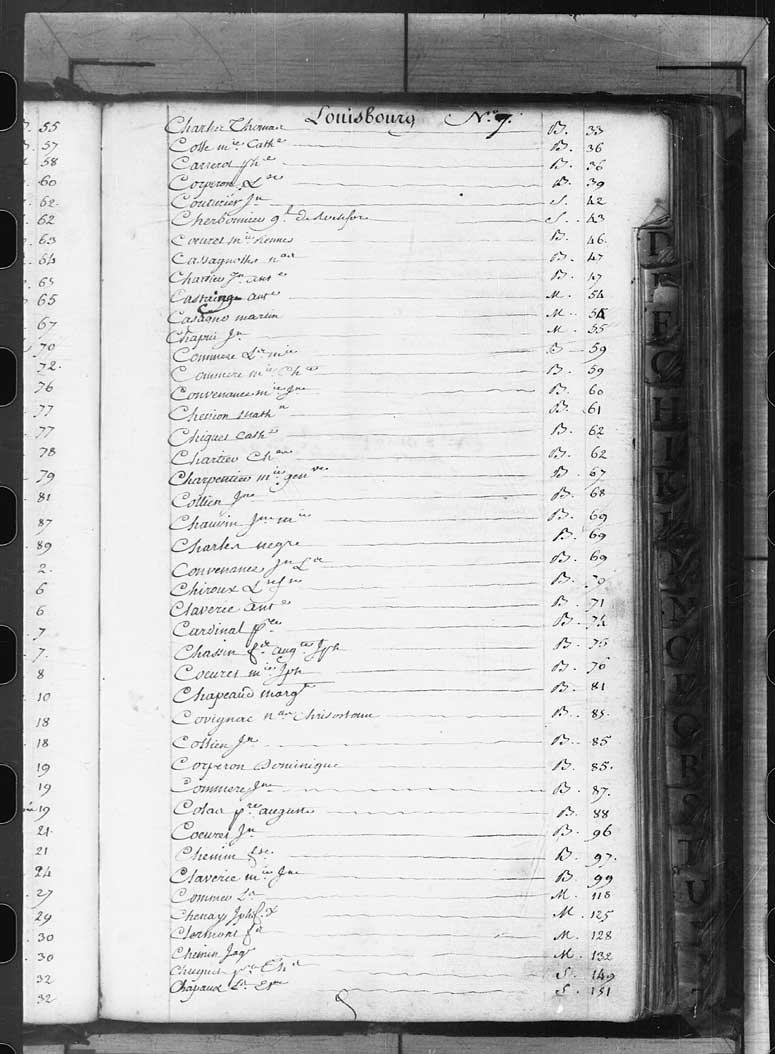 55
57
58
60
62.
62
63
64
65
65
67
70
72.
76
77
77
78
79
81
87
89
2.
6
6
7
7.
8
10
18
18
19
19
19
21.
21
24
27
29
30
30
32
32
Louisbourg N.° 7.
Chartier Thomas B. 33
Cosse m.ie Cath.e B. 36
Carrerot B. 36
Corperon B. 39
Couturier Jn S. 42
Cherbonnier S. 43
Coeuret m.ie B. 46.
Cassagnolles B. 47
Chartier Jn ant.e B. 47
Castaing ant.e M. 54
Casagno martin M. 54
Chaprié Jn M. 55
Commere L.s m.ie B. 59
Commere m.ie Ch.e B. 59
Convenance m.ie Jne B. 60
Chesson Math.n B. 61
Chiquet Cath.e B. 62
Chartier Ch.es B. 62
Charpentier m.ie gen.ve B. 67
Cottien Jne B. 68
Chauvin Jne m.ie B. 69
Charles negre B. 69
Convenance Jn L.s B. 69
Chiroux B. 70
Claverie ant.e B. 71
Cardinal p.re B. 74
Chassin aug.te Jph B. 75
Coeuret m.ie Jph B. 76
Chapeaud marg.te B. 81
Covignac Chrisostome B. 85.
Cottien Jn B. 85
Corperon Dominique B. 85.
Commere Jne B. 87.
Colas p.re auguste B. 88
Coeuret Jn B. 96
Chemin B. 97.
Claverie m.ie Jne B. 99
Commere L.s M. 118
Chenay Jph f. x M. 125
Clermont M. 128
Chemin Jaq.s M. 132
Chuquet S. 149
Chapaux S. 151
D
E
F
G
H
I
K
L
M
N
O
P
Q
R
S
T
U